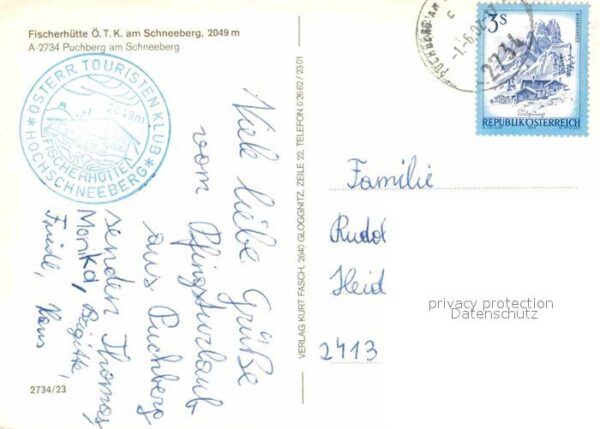 Fischerhütte Ö. T. K. am Schneeberg, 2049 m
A-2734 Puchberg am Schneeberg
ÖSTERR TOURISTENKLUB
2049m
FISCHERHÜTTE
HOCHSCHNEEBERG
Viele liebe Grüße
vom Pfingsturlaub
aus Puchberg
senden Thomas,
Monika, Brigitte,
Friedl, Hans
2734/23
VERLAG KURT FASCH, 2640 GLOGGNITZ, ZEILE 22, TELEFON 0 26 62 / 23 01
PUCHBERG AM
c
-1.-6.
2734
3S
REPUBLIK ÖSTERREICH
Familie
Rudolf
Heid
2413
privacy protection
Datenschutz